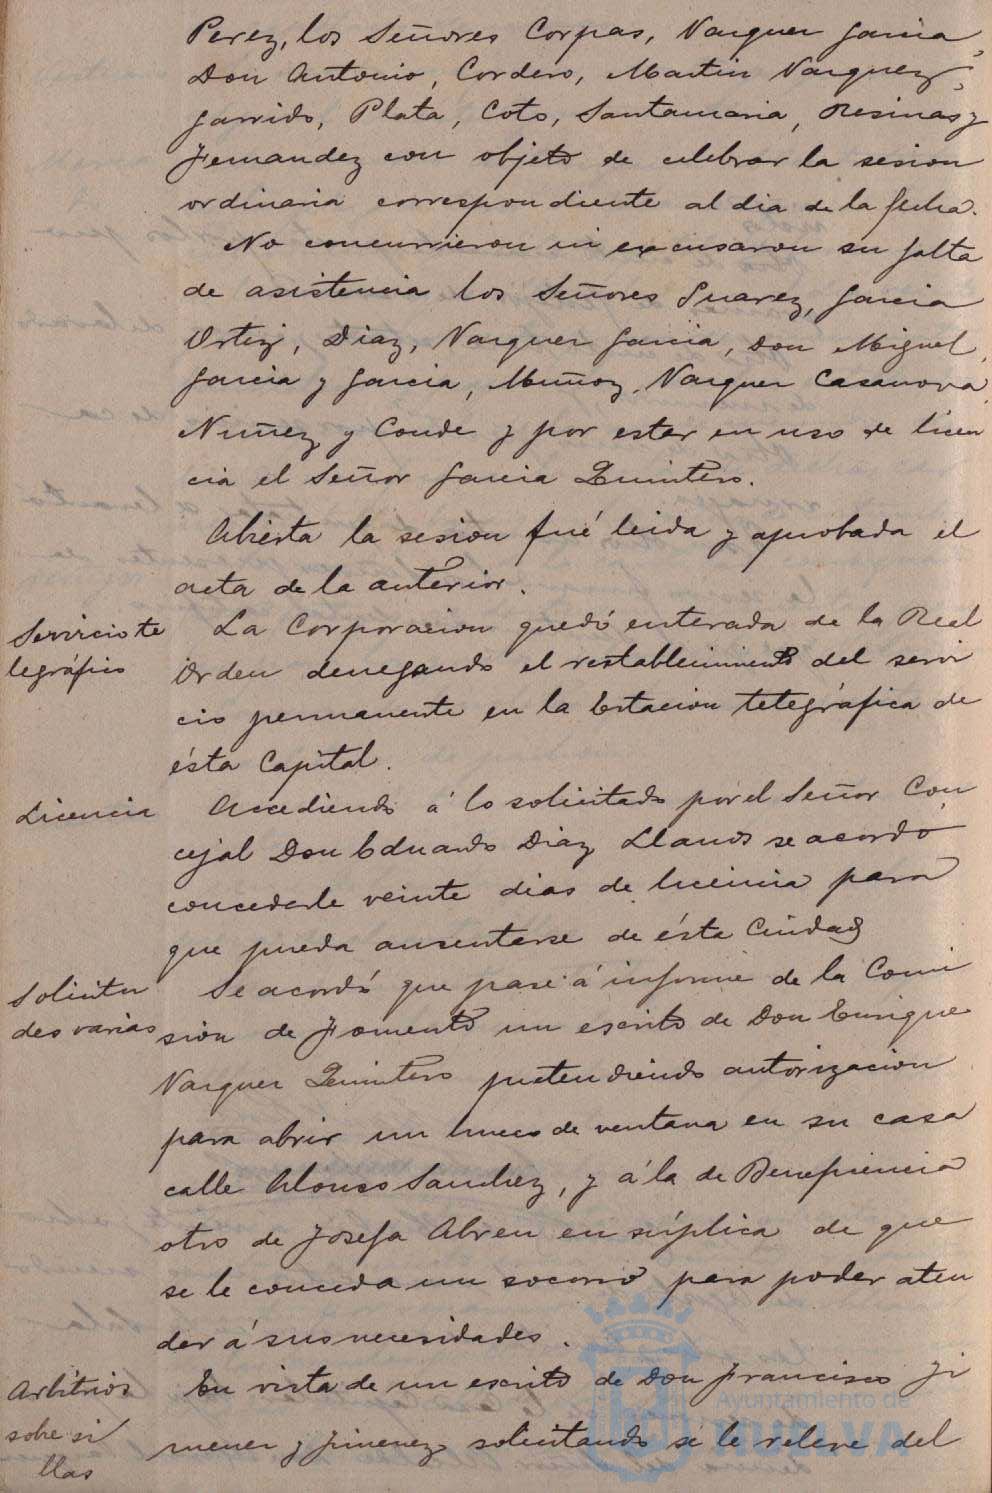 Perez, los Señores Corpas, Vazquez Garcia,
Don Antonio, Cordero, Martin Vazquez,
Garrido, Plata, Coto, Santamaria, Resinas y
Fernandez con objeto de celebrar la sesion
ordinaria correspondiente al dia de la fecha.
No concurrieron ni excusaron su falta
de asistencia los Señores Suarez, Garcia
Ortiz, Diaz, Vazquez Garcia, Don Miguel,
Garcia y Garcia, Muñoz, Vazquez Casanova,
Nuñez y Conde y por estar en uso de licen
cia el Señor Garcia Quintero.
Abierta la sesion fué leida y aprobada el
acta de la anterior.
Servicio te
legráfico
La Corporacion quedó enterada de la Real
Orden denegando el restablecimiento del servi
cio permanente en la Estacion telegráfica de
ésta Capital.
Licencia
Accediendo á lo solicitado por el Señor Con
cejal Don Eduardo Diaz Llanos se acordó
concederle veinte dias de licencia para
que pueda ausentarse de ésta Ciudad
Solicitu
des varias
Se acordó que pase á informe de la Comi
sión de Fomento un escrito de Don Enrique
Vazquez Quintero pretendiendo autorizacion
para abrir un hueco de ventana en su casa
calle Alonso Sanchez, y á la de Beneficencia
otro de Josefa Abreu en súplica de que
se le conceda un socorro para poder aten
der á sus necesidades.
Arbitrios
sobre si
llas
En vista de un escrito de Don Francisco Ji
menez y Jimenez solicitando se le releve del
Ayuntamiento de
HUELVA